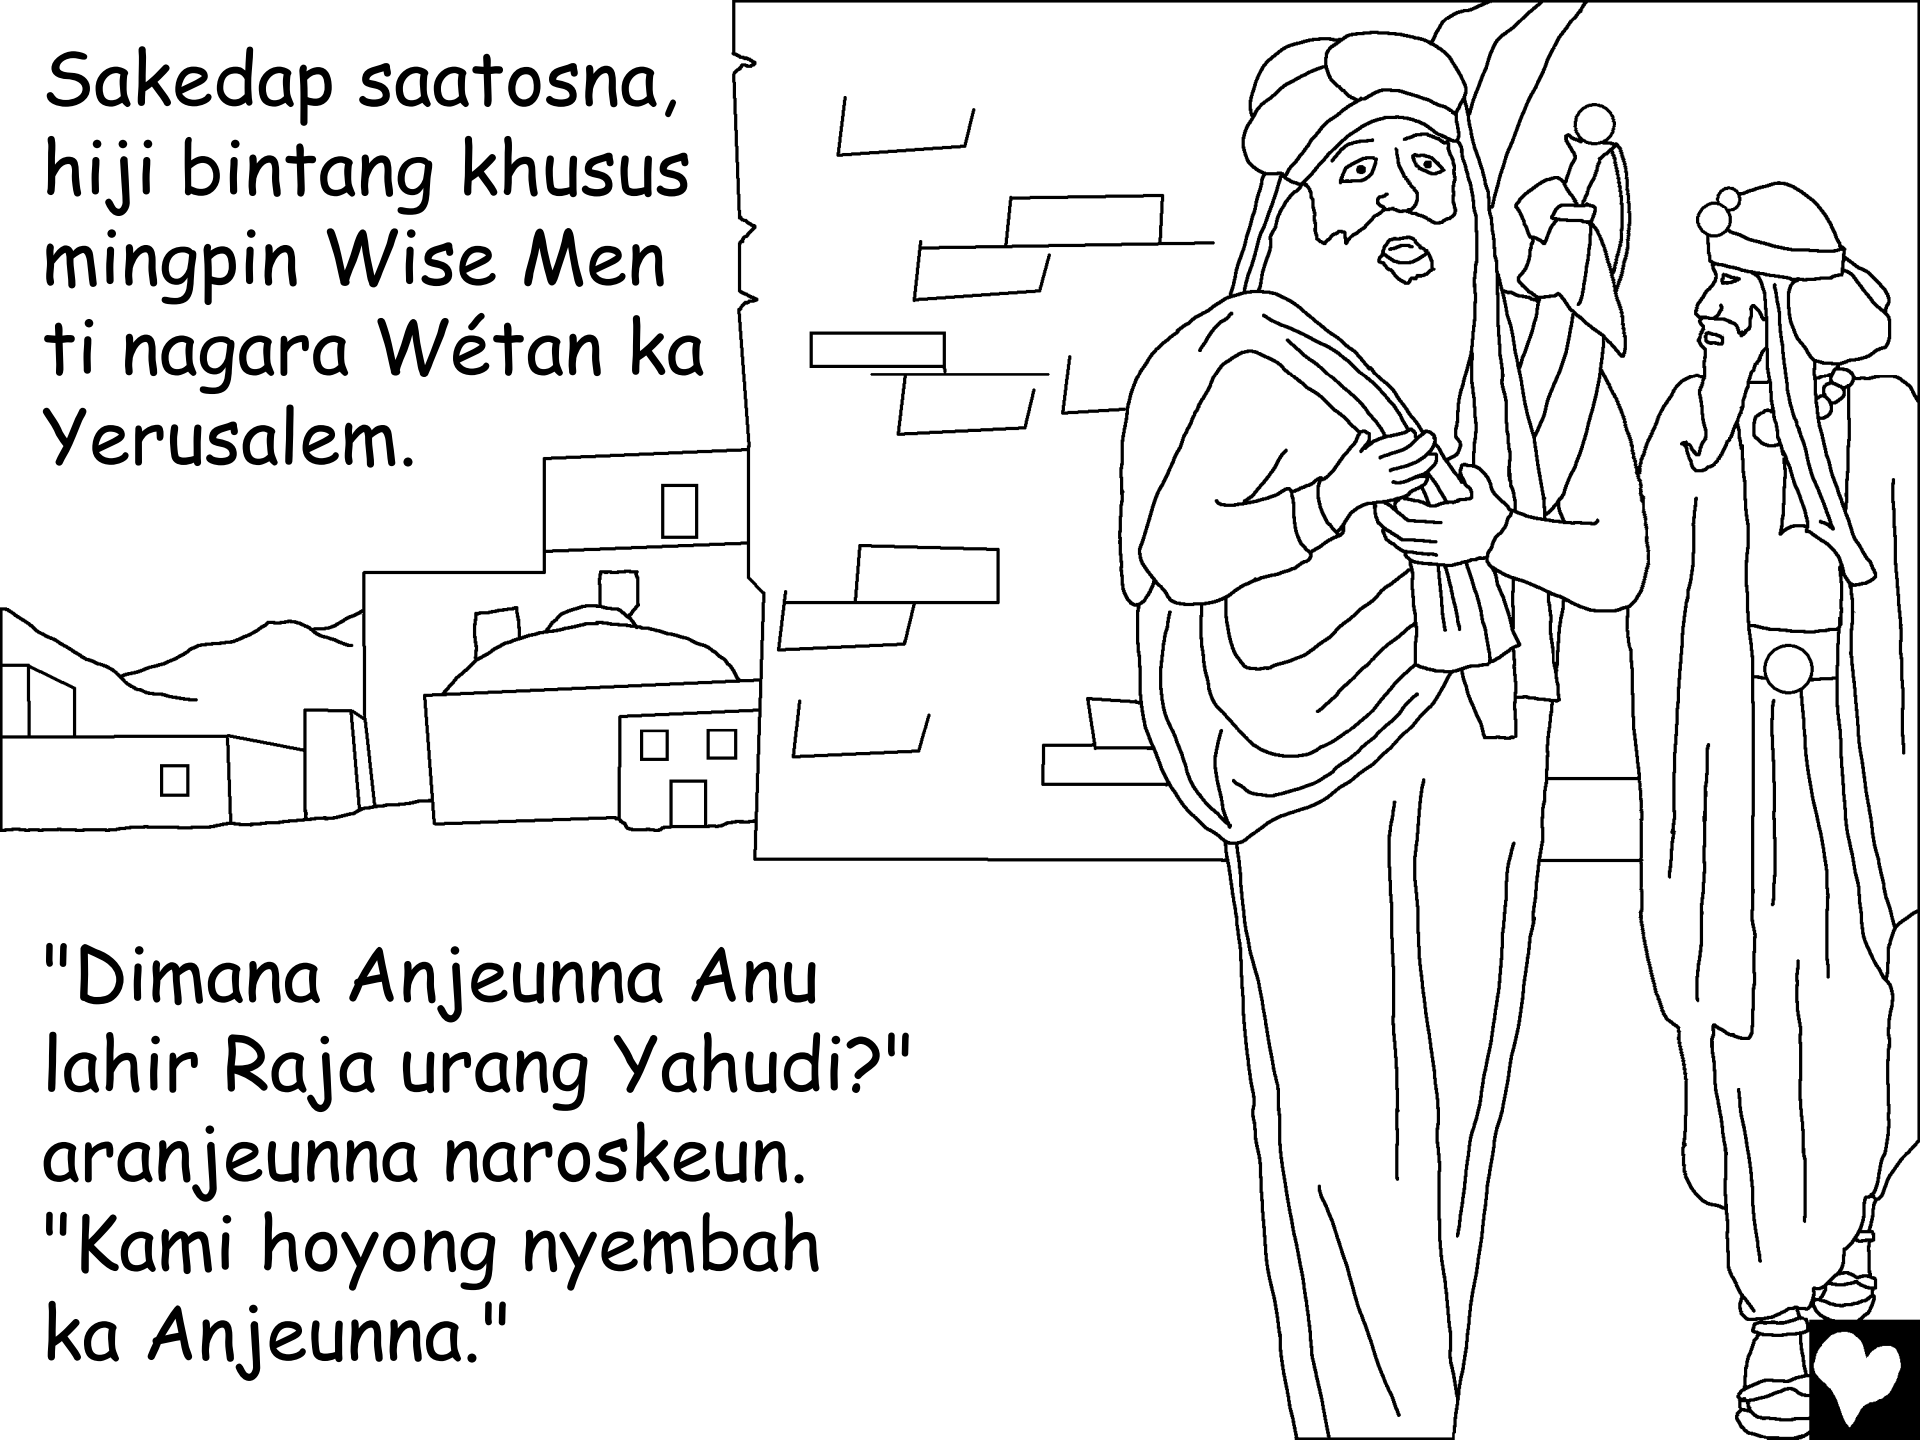 Sakedap saatosna,
hiji bintang khusus
mingpin Wise Men
ti nagara Wétan ka
Yerusalem.
"Dimana Anjeunna Anu
lahir Raja urang Yahudi?"
aranjeunna naroskeun.
"Kami hoyong nyembah
ka Anjeunna."